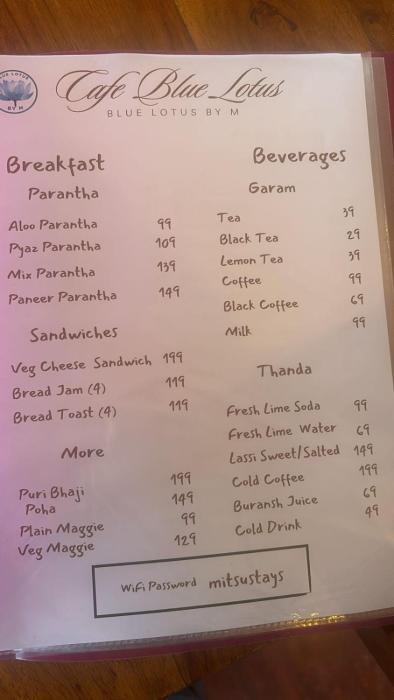 BLUE LOTUS
BY M
Cafe Blue Lotus
BLUE LOTUS BY M
Breakfast
Parantha
Aloo Parantha 99
Pyaz Parantha 109
Mix Parantha 139
Paneer Parantha 149
Sandwiches
Veg Cheese Sandwich 199
Bread Jam (4) 119
Bread Toast (4) 119
More
Puri Bhaji 199
Poha 149
Plain Maggie 99
Veg Maggie 129
Beverages
Garam
Tea 39
Black Tea 29
Lemon Tea 39
Coffee 99
Black Coffee 69
Milk 99
Thanda
Fresh Lime Soda 99
Fresh Lime Water 69
Lassi Sweet/Salted 149
Cold Coffee 199
Buransh Juice 69
Cold Drink 49
WiFi Password mitsustays